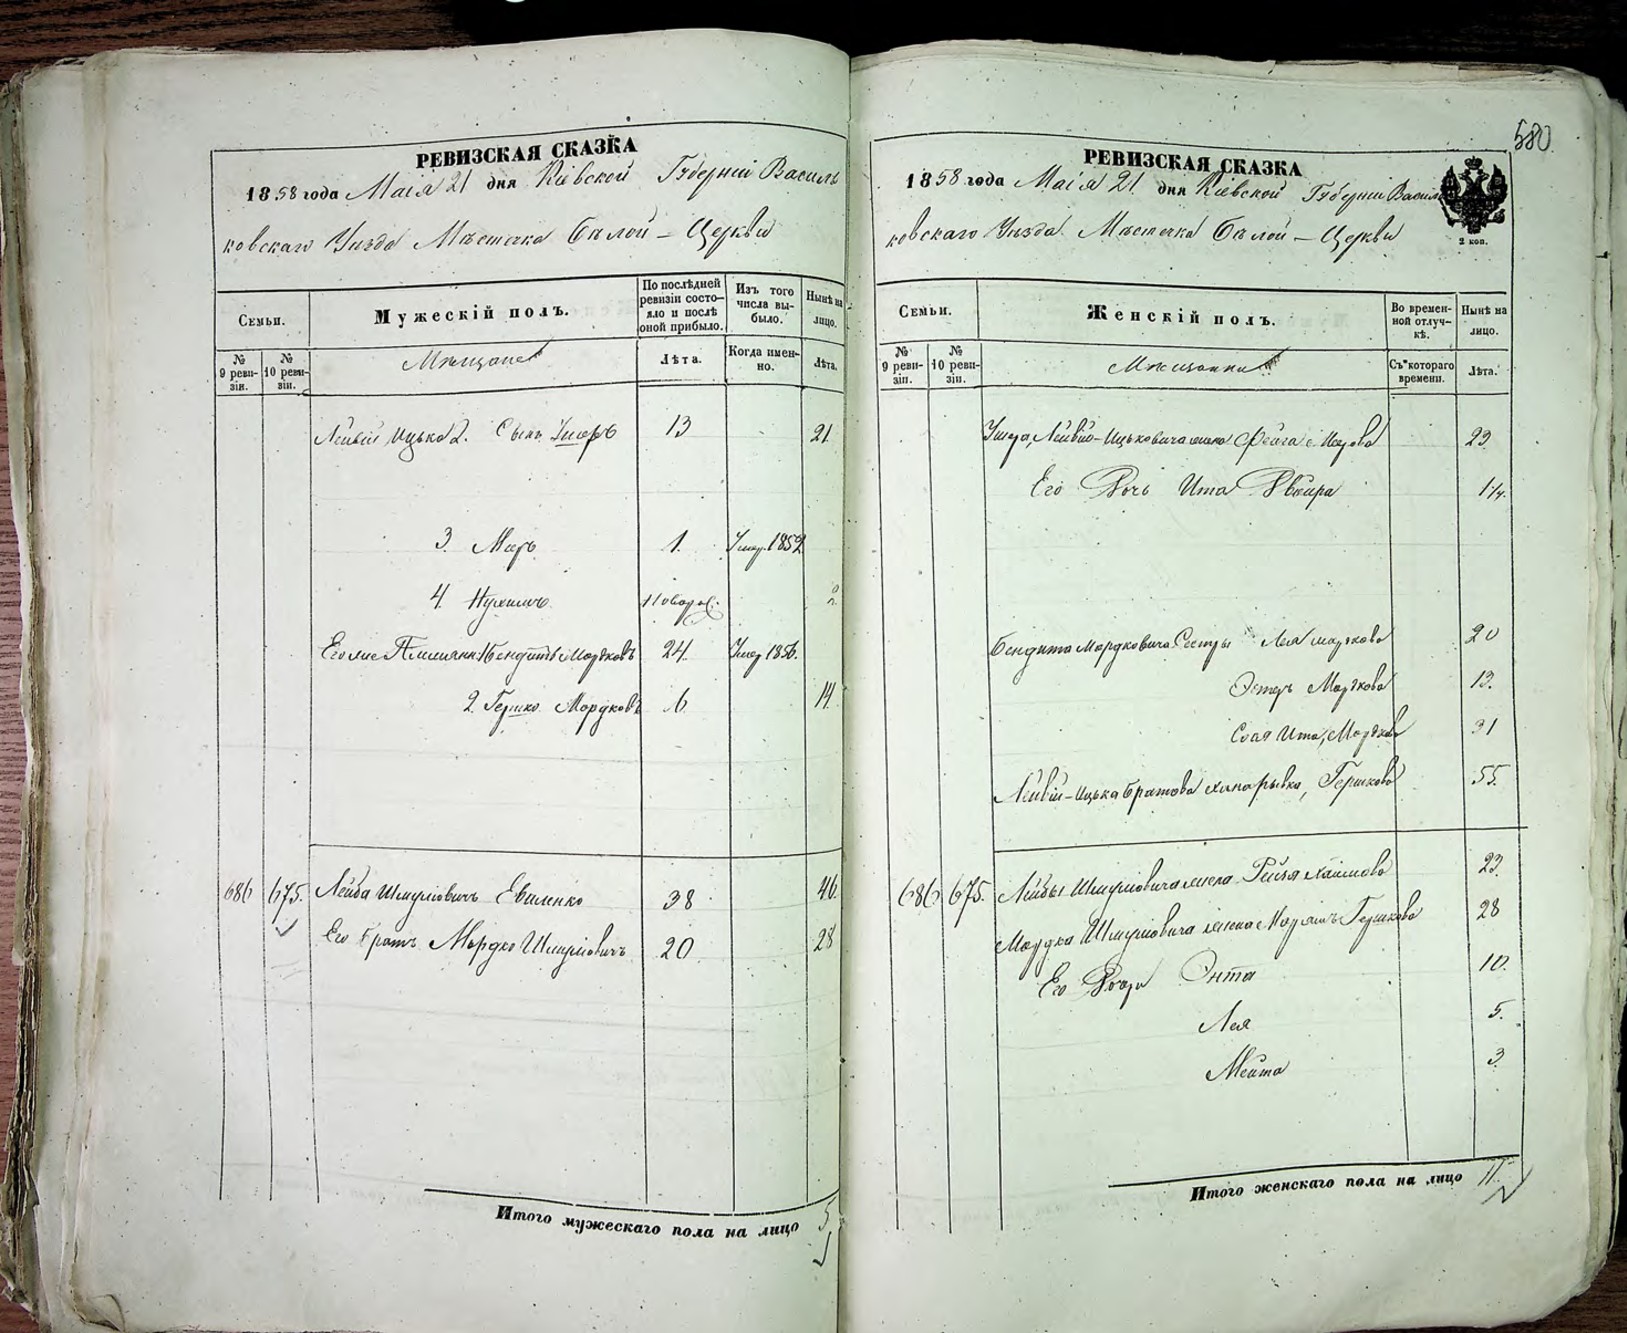 РЕВИЗСКАЯ СКАЗКА
1858 года Маія 21 дня Кіевской Губерніи Василь
ковскаго Уѣзда Мѣстечка Бѣлой – Церкви
Семьи.
Мужескій полъ.
По послѣдней ревизіи состо-яло и послѣ оной прибыло.
Изъ того числа вы-было.
Нынѣ на лицо.
№ 9 реви-зіи.
№ 10 реви-зіи.
Мѣщане
Лѣта.
Когда имен-но.
Лѣта.
Лейви Ицька 2. Сынъ Ушеръ 13 21
3. Меръ 1. Умер. 1852
4. Нухимъ 2
Его же Бендитъ Мордковъ 24. Умер 1856.
2. Гершко Мордковъ 6 14
686 675. Лейба Шмулiовичъ 38 46.
Его братъ Мордко Шмулiовичъ 20 28
Итого мужескаго пола на лицо 5
580
РЕВИЗСКАЯ СКАЗКА
1858 года Маія 21 дня Кіевской Губерніи Василь
2 коп.
ковскаго Уѣзда Мѣстечка Бѣлой – Церкви
Семьи.
Женскій полъ.
Во времен-ной отлуч-кѣ.
Нынѣ на лицо.
№ 9 реви-зіи.
№ 10 реви-зіи.
Мѣщанки
Съ котораго времени.
Лѣта.
Ушера Лейвiо-Ицьковича жена Фейга 23
Его Дочь Ита Двойра 1¼.
Бендита Мордковича Сестры Лея Мордкова 20
Эстеръ Мордкова 13.
Ита, Мордкова 31
Лейвiй-Ицька братова Гершкова 55.
686 675. Лейбы Шмулiовича жена Рейзя Хаимова 23.
Мордка Шмулiовича жена Маріямъ Гершкова 28
Его Дочери Энта 10.
Лея 5.
Мейта 3
Итого женскаго пола на лицо 11